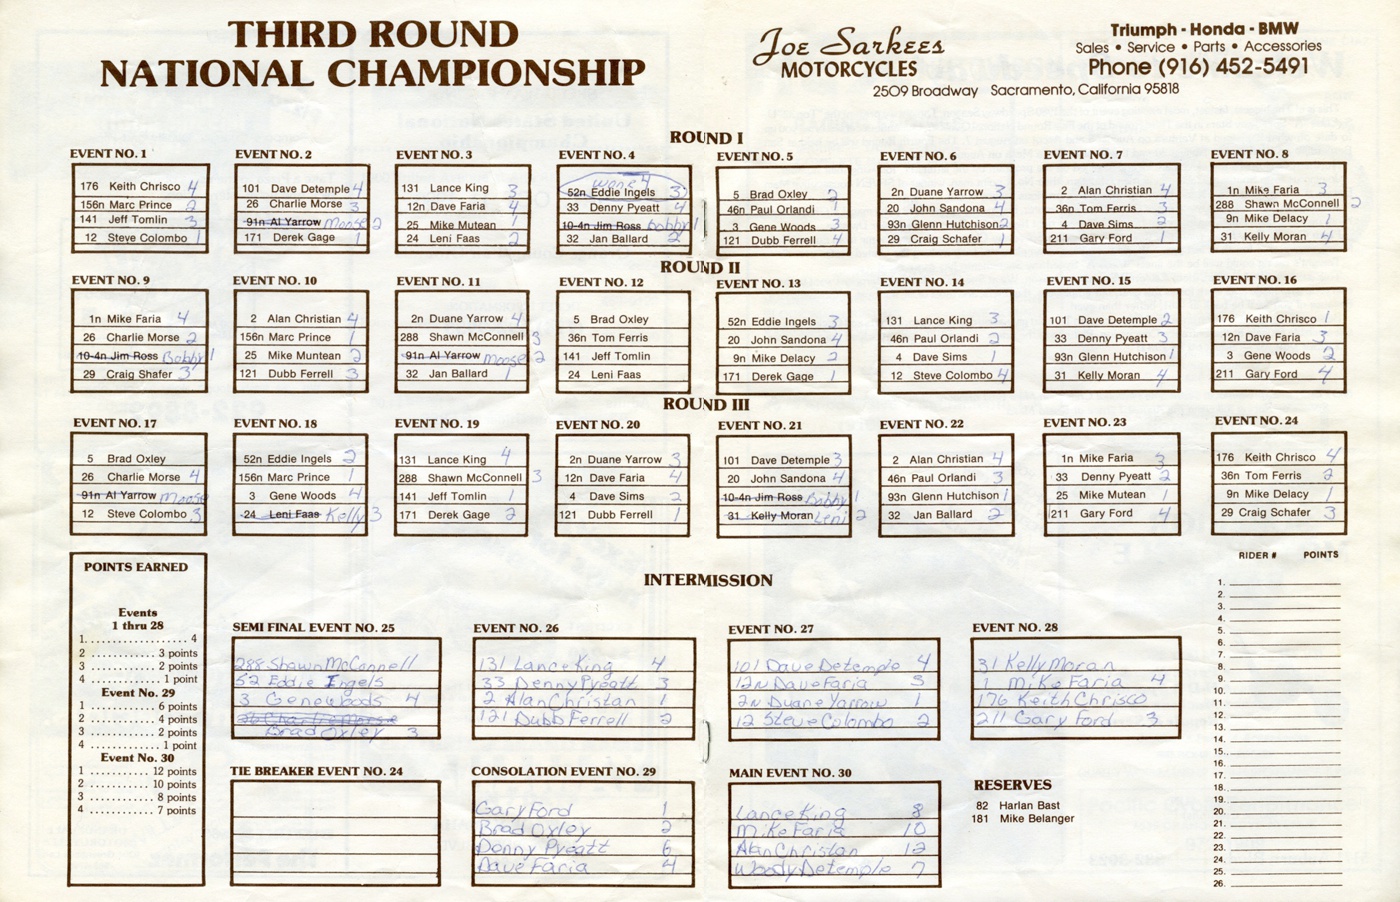 THIRD ROUND
NATIONAL CHAMPIONSHIP
Joe Sarkees
MOTORCYCLES
Triumph - Honda - BMW
Sales • Service • Parts • Accessories
Phone (916) 452-5491
2509 Broadway Sacramento, California 95818
ROUND I
EVENT NO. 1
176 Keith Chrisco 4
156n Marc Prince 2
141 Jeff Tomlin 3
12 Steve Colombo 1
EVENT NO. 2
101 Dave Detemple 4
26 Charlie Morse 3
91n Al Yarrow Moose 2
171 Derek Gage 1
EVENT NO. 3
131 Lance King 3
12n Dave Faria 4
25 Mike Mutean 1
24 Leni Faas 2
EVENT NO. 4
52n Eddie Ingels 3
33 Denny Pyeatt 4
10-4n Jim Ross Bobby 1
32 Jan Ballard 2
EVENT NO. 5
5 Brad Oxley 2
46n Paul Orlandi 1
3 Gene Woods 3
121 Dubb Ferrell 4
EVENT NO. 6
2n Duane Yarrow 3
20 John Sandona 4
93n Glenn Hutchison 2
29 Craig Schafer 1
EVENT NO. 7
2 Alan Christian 4
36n Tom Ferris 3
4 Dave Sims 2
211 Gary Ford 1
EVENT NO. 8
1n Mike Faria 3
288 Shawn McConnell 2
9n Mike Delacy 1
31 Kelly Moran 4
ROUND II
EVENT NO. 9
1n Mike Faria 4
26 Charlie Morse 2
10-4n Jim Ross Bobby 1
29 Craig Shafer 3
EVENT NO. 10
2 Alan Christian 4
156n Marc Prince 1
25 Mike Muntean 2
121 Dubb Ferrell 3
EVENT NO. 11
2n Duane Yarrow 4
288 Shawn McConnell 3
91n Al Yarrow Moose 2
32 Jan Ballard 1
EVENT NO. 12
5 Brad Oxley
36n Tom Ferris
141 Jeff Tomlin
24 Leni Faas
EVENT NO. 13
52n Eddie Ingels 3
20 John Sandona 4
9n Mike Delacy 2
171 Derek Gage 1
EVENT NO. 14
131 Lance King 3
46n Paul Orlandi 2
4 Dave Sims 1
12 Steve Colombo 4
EVENT NO. 15
101 Dave Detemple 2
33 Denny Pyeatt 3
93n Glenn Hutchison 1
31 Kelly Moran 4
EVENT NO. 16
176 Keith Chrisco 1
12n Dave Faria 3
3 Gene Woods 2
211 Gary Ford 4
ROUND III
EVENT NO. 17
5 Brad Oxley
26 Charlie Morse 4
91n Al Yarrow Moose
12 Steve Colombo 3
EVENT NO. 18
52n Eddie Ingels 2
156n Marc Prince 1
3 Gene Woods 4
24 Leni Faas Kelly 3
EVENT NO. 19
131 Lance King 4
288 Shawn McConnell 3
141 Jeff Tomlin 1
171 Derek Gage 2
EVENT NO. 20
2n Duane Yarrow 3
12n Dave Faria 4
4 Dave Sims 2
121 Dubb Ferrell 1
EVENT NO. 21
101 Dave Detemple 3
20 John Sandona 4
10-4n Jim Ross Bobby 1
31 Kelly Moran Leni 2
EVENT NO. 22
2 Alan Christian 4
46n Paul Orlandi 3
93n Glenn Hutchison 1
32 Jan Ballard 2
EVENT NO. 23
1n Mike Faria 3
33 Denny Pyeatt 2
25 Mike Mutean 1
211 Gary Ford 4
EVENT NO. 24
176 Keith Chrisco 4
36n Tom Ferris 2
9n Mike Delacy 1
29 Craig Schafer 3
POINTS EARNED
Events
1 thru 28
1. ................. 4
2 ........... 3 points
3 ........... 2 points
4 ............ 1 point
Event No. 29
1 ........... 6 points
2 ........... 4 points
3 ........... 2 points
4 ............ 1 point
Event No. 30
1 .......... 12 points
2 .......... 10 points
3 ........... 8 points
4 ........... 7 points
INTERMISSION
SEMI FINAL EVENT NO. 25
288 Shawn McConnell
52 Eddie Ingels
3 Genewoods 4
26 Charlie morse
Brad Oxley 3
EVENT NO. 26
131 Lance King 4
33 Denny Pyeatt 3
2 Alan Christan 1
121 Dubb Ferrell 2
EVENT NO. 27
101 Dave Detemple 4
12N Dave Faria 3
2N Duane Yarrow 1
12 Steve Colombo 2
EVENT NO. 28
31 Kelly Moran
1 Mike Faria 4
176 Keith Chrisco
211 Gary Ford 3
TIE BREAKER EVENT NO. 24
CONSOLATION EVENT NO. 29
Gary Ford 1
Brad Oxley 2
Denny Pyeatt 6
Dave Faria 4
MAIN EVENT NO. 30
Lance King 8
Mike Faria 10
Alan Christan 12
Woody Detemple 7
RESERVES
82 Harlan Bast
181 Mike Belanger
RIDER # POINTS
1.
2.
3.
4.
5.
6.
7.
8.
9.
10.
11.
12.
13.
14.
15.
16.
17.
18.
19.
20.
21.
22.
23.
24.
25.
26.